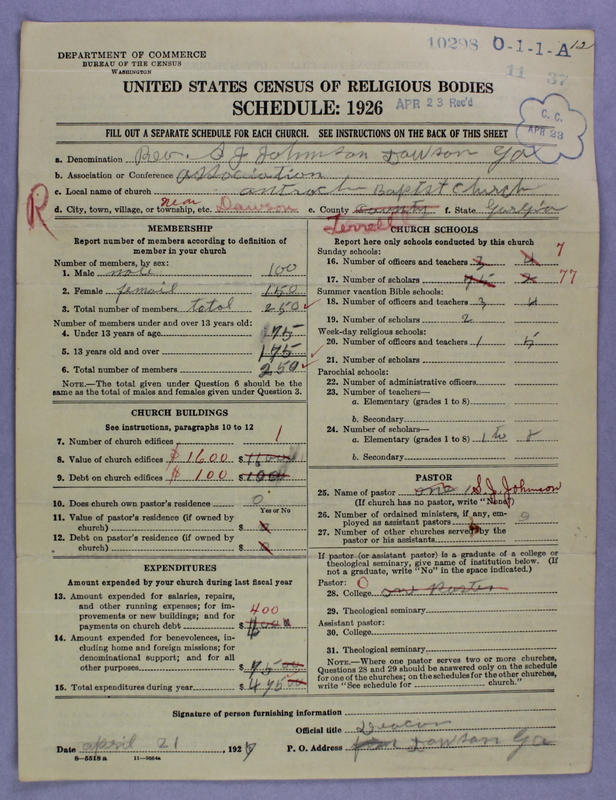 10298 O-1-1-A 12
11 37
DEPARTMENT OF COMMERCE
BUREAU OF THE CENSUS
WASHINGTON
UNITED STATES CENSUS OF RELIGIOUS BODIES
SCHEDULE: 1926
APR 23 Rec'd
C. C.
APR 23
FILL OUT A SEPARATE SCHEDULE FOR EACH CHURCH. SEE INSTRUCTIONS ON THE BACK OF THIS SHEET
a. Denomination Rev. S J Johnson Dawson Ga
b. Association or Conference association
c. Local name of church antroch Baptst Church
R
d. City, town, village, or township, etc. near Dawson e. County Terrell f. State Gurgia
MEMBERSHIP
Report number of members according to definition of
member in your church
Number of members, by sex:
1. Male male 100
2. Female femail 150
3. Total number of members total 250
Number of members under and over 13 years old:
4. Under 13 years of age 175
5. 13 years old and over 175
6. Total number of members 250
NOTE.—The total given under Question 6 should be the
same as the total of males and females given under Question 3.
CHURCH BUILDINGS
See instructions, paragraphs 10 to 12
7. Number of church edifices 1
8. Value of church edifices $1600 $
9. Debt on church edifices $100 $100
10. Does church own pastor's residence 0
Yes or No
11. Value of pastor's residence (if owned by
church) $ 0
12. Debt on pastor's residence (if owned by
church) $ 0
EXPENDITURES
Amount expended by your church during last fiscal year
13. Amount expended for salaries, repairs,
and other running expenses; for im-
provements or new buildings; and for
payments on church debt $ 400
14. Amount expended for benevolences, in-
cluding home and foreign missions; for
denominational support; and for all
other purposes $ 7500
15. Total expenditures during year $ 47500
CHURCH SCHOOLS
Report here only schools conducted by this church
Sunday schools:
16. Number of officers and teachers 3 4 7
17. Number of scholars 75 2 77
Summer vacation Bible schools:
18. Number of officers and teachers 3 4
19. Number of scholars 2
Week-day religious schools:
20. Number of officers and teachers 1 5
21. Number of scholars
Parochial schools:
22. Number of administrative officers
23. Number of teachers—
a. Elementary (grades 1 to 8)
b. Secondary
24. Number of scholars—
a. Elementary (grades 1 to 8) 1 to 8
b. Secondary
PASTOR
25. Name of pastor one S. J. Johnson
(If church has no pastor, write "None")
26. Number of ordained ministers, if any, em-
ployed as assistant pastors 9
27. Number of other churches served by the
pastor or his assistants
If pastor (or assistant pastor) is a graduate of a college or
theological seminary, give name of institution below. (If
not a graduate, write "No" in the space indicated.)
Pastor: 0
28. College one Paster
29. Theological seminary
Assistant pastor:
30. College
31. Theological seminary
NOTE.—Where one pastor serves two or more churches,
Questions 28 and 29 should be answered only on the schedule
for one of the churches; on the schedules for the other churches,
write "See schedule for church."
Signature of person furnishing information
Official title Deacon
Date april 21, 1927 P. O. Address Dawson Ga
8—5518a 11—9564a